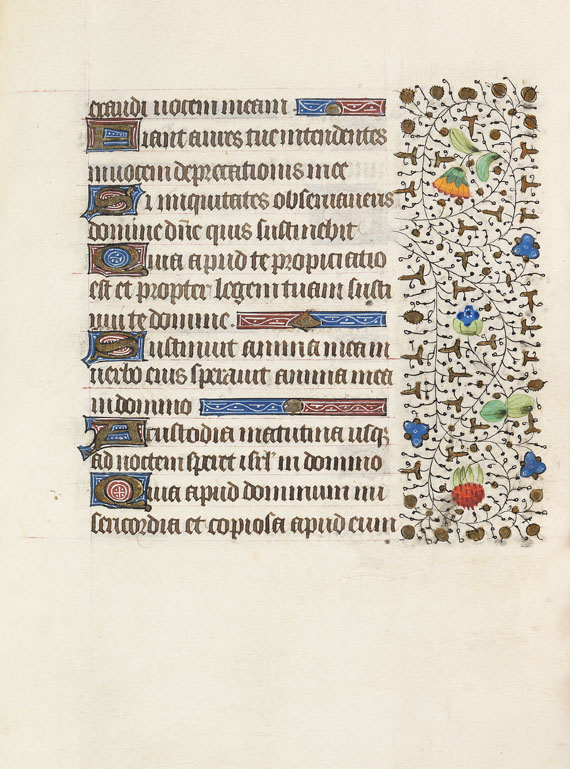 exaudi vocem meam
Fiant aures tue intendentes
in vocem deprecationis mee
Si iniquitates observaveris
domine dñe quis sustinebit
Quia apud te propiciatio
est et propter legem tuam susti
nui te domine.
Sustinuit anima mea in
verbo eius speravit anima mea
in domino
A custodia matutina usq̄
ad noctem speret isrl̄ in domino
Quia apud dominum mi
sericordia et copiosa apud eum